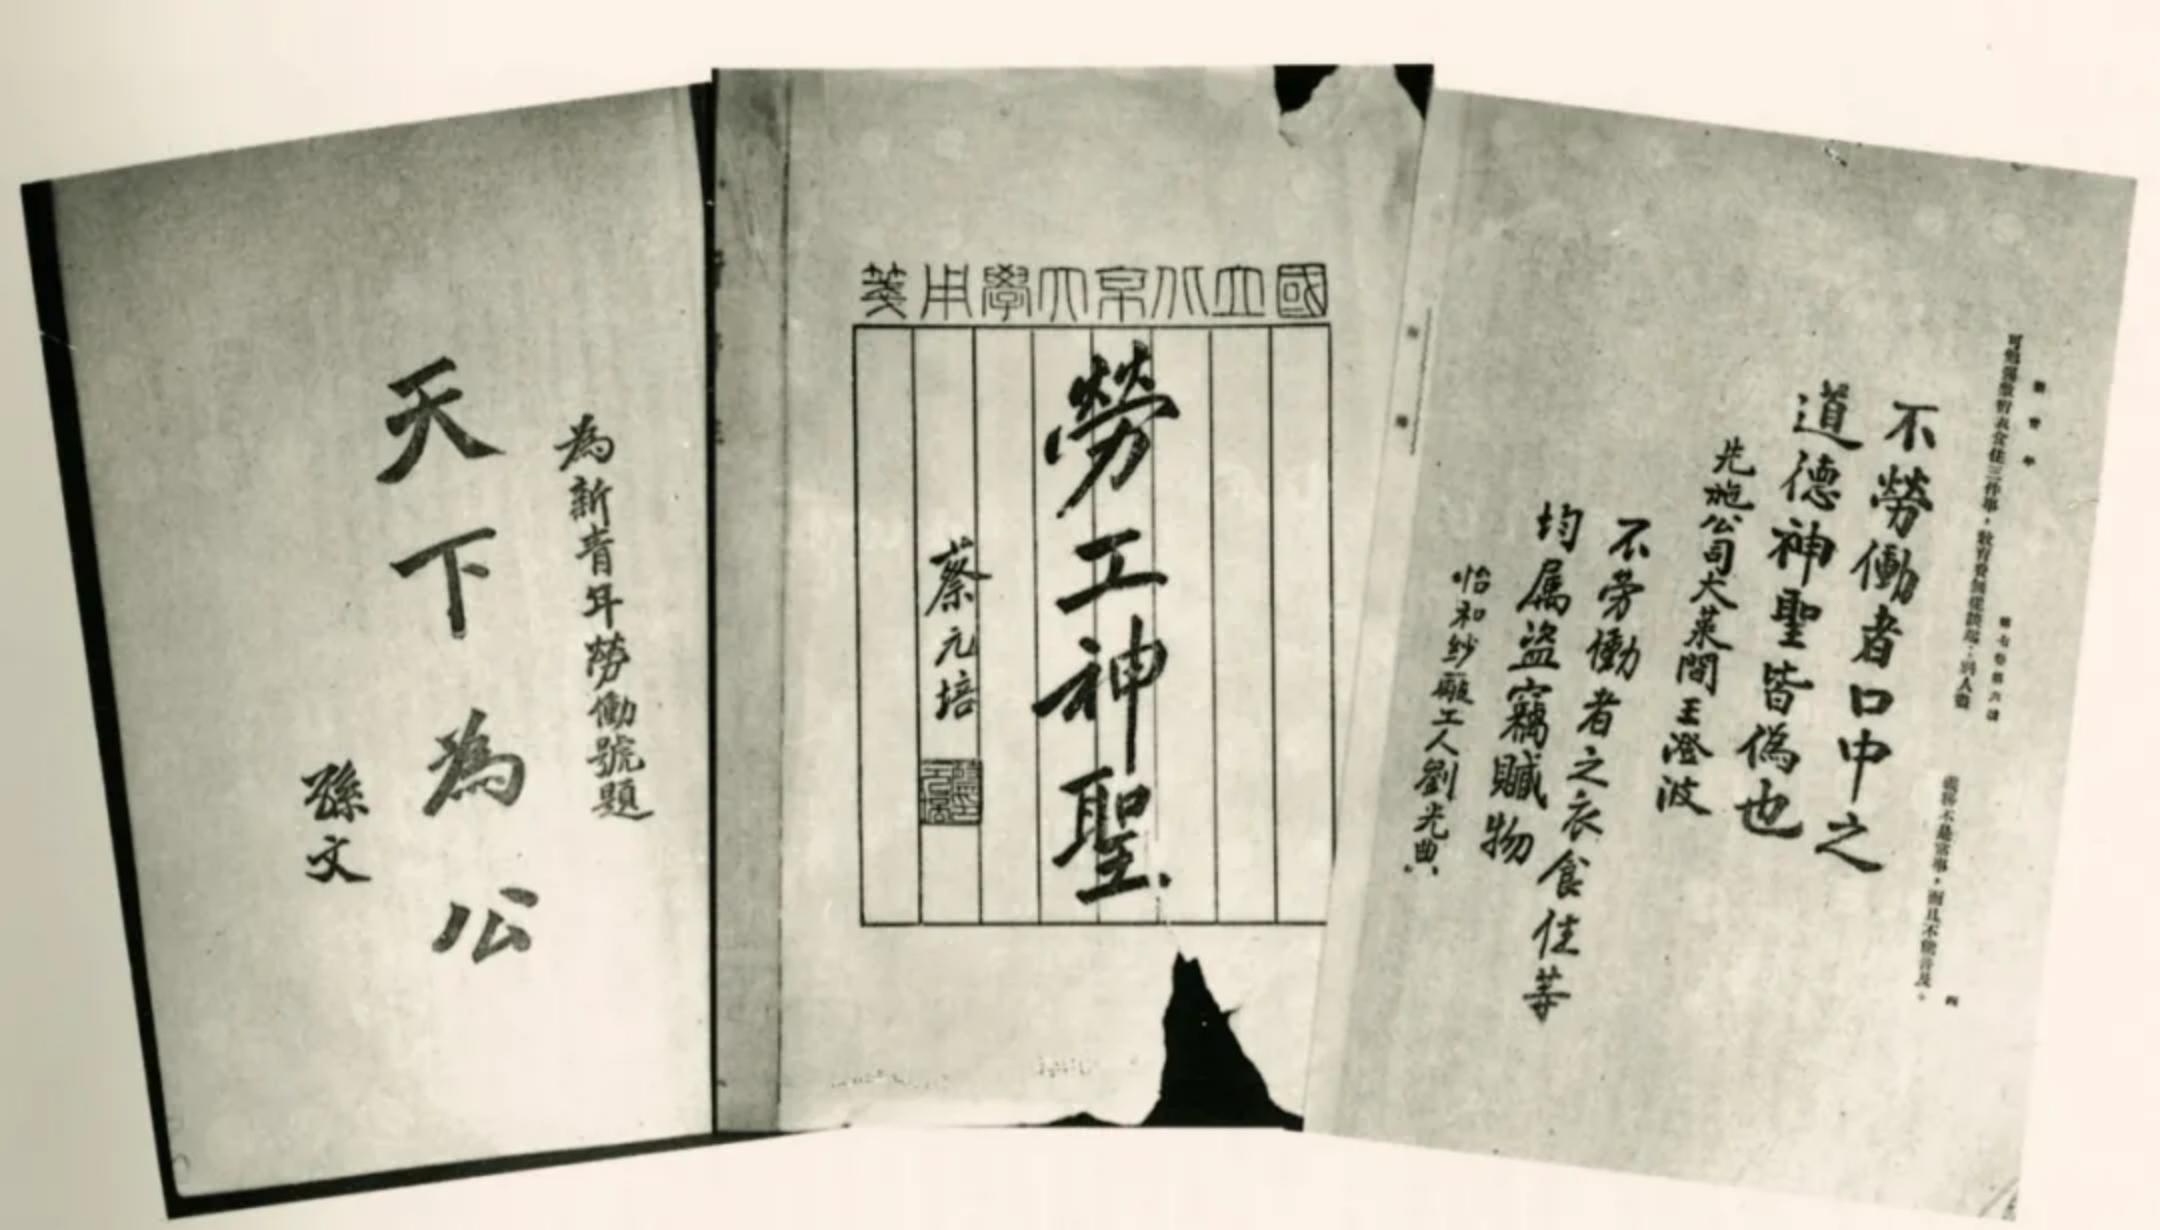 為新青年勞働號題
天下為公
孫文
國立北京大學用箋
勞工神聖
蔡元培
不勞働者口中之
道德神聖皆偽也
先施公司大菜間王澄波
不劳働者之衣食住等
均属盗竊贓物
怡和紗廠工人劉光典
新青年
第七卷第六號
四